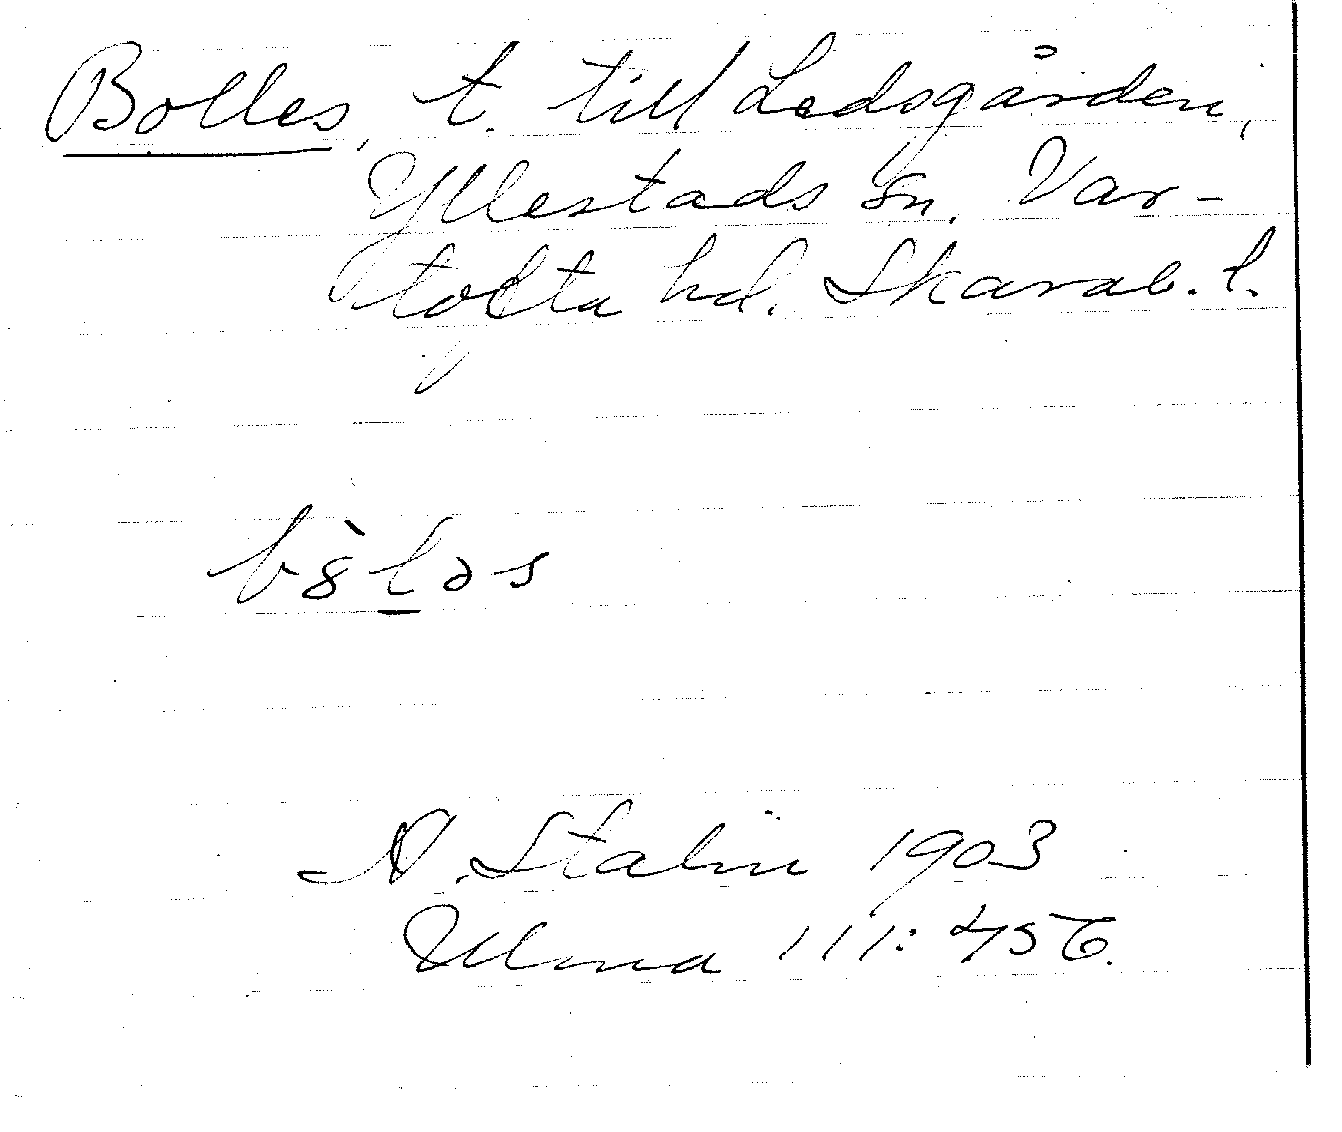 Bolles, t. till Ledsgården,
Yllestads sn. Var-
tofta hd. Skarab. l.
bàləs
A. Stalin 1903
Ulma 111: 456.